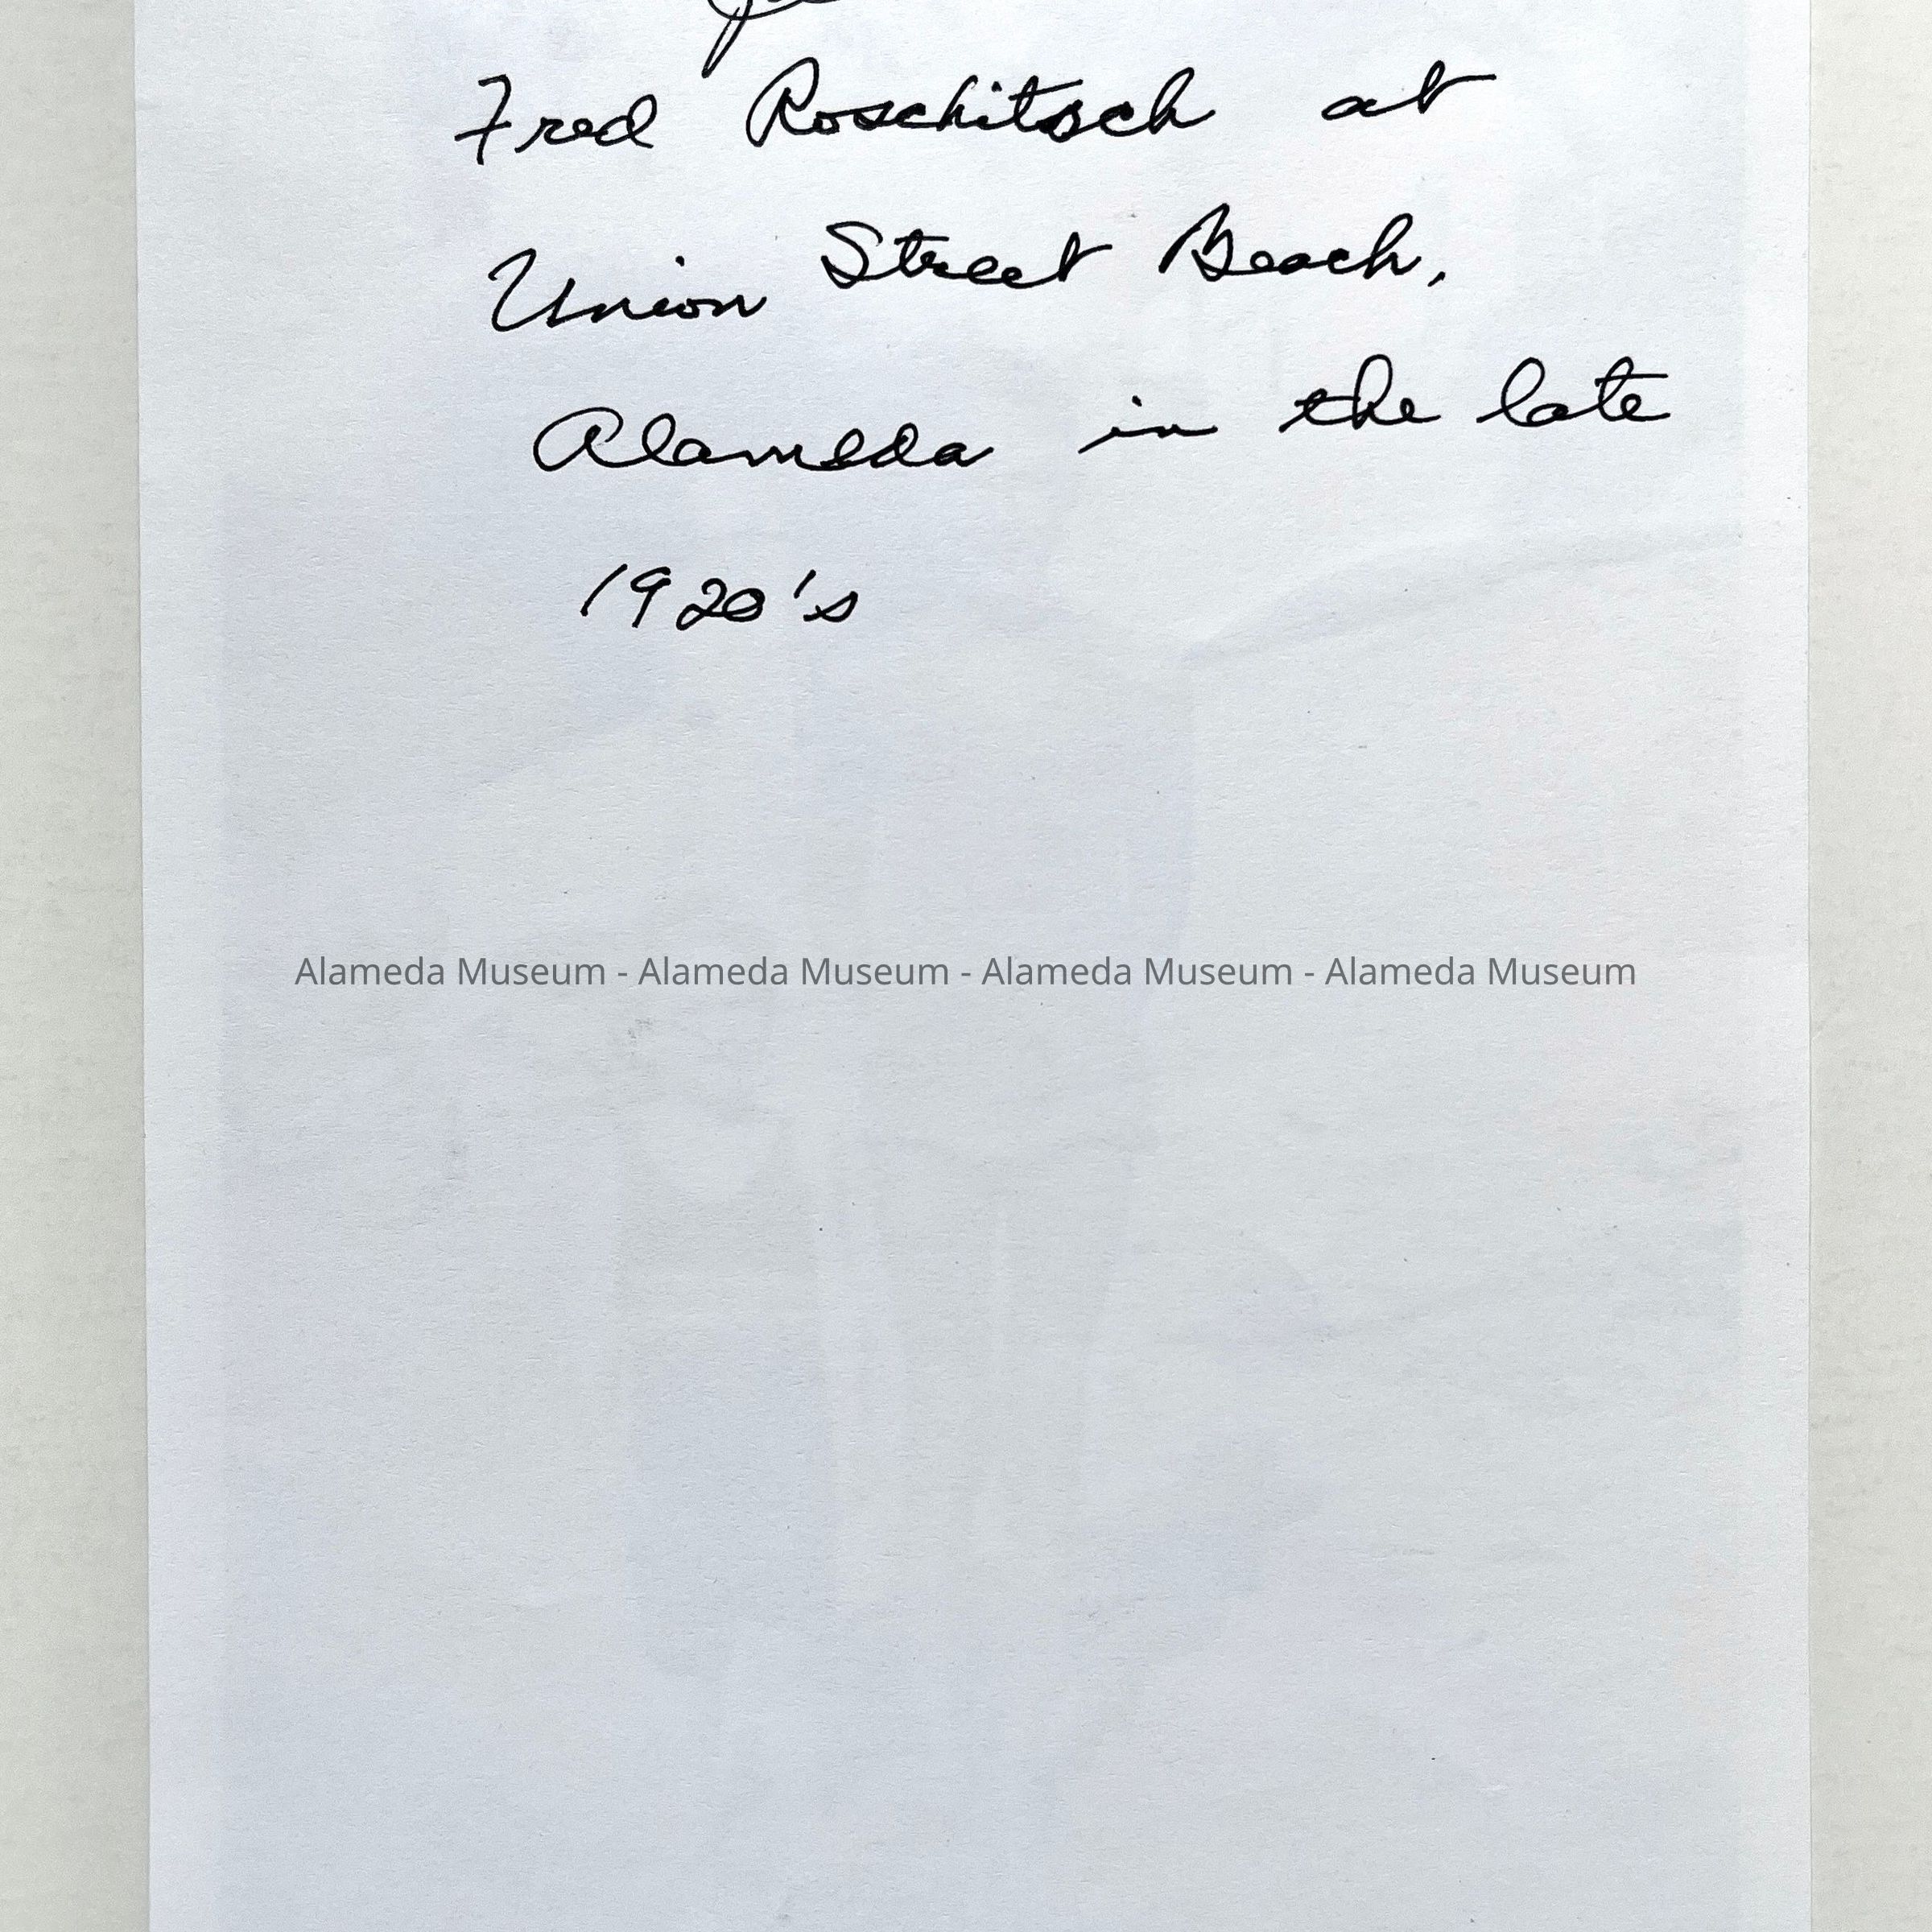 Fred Roschitsch at
Union Street Beach,
Alameda in the late
1920's
Alameda Museum - Alameda Museum - Alameda Museum - Alameda Museum